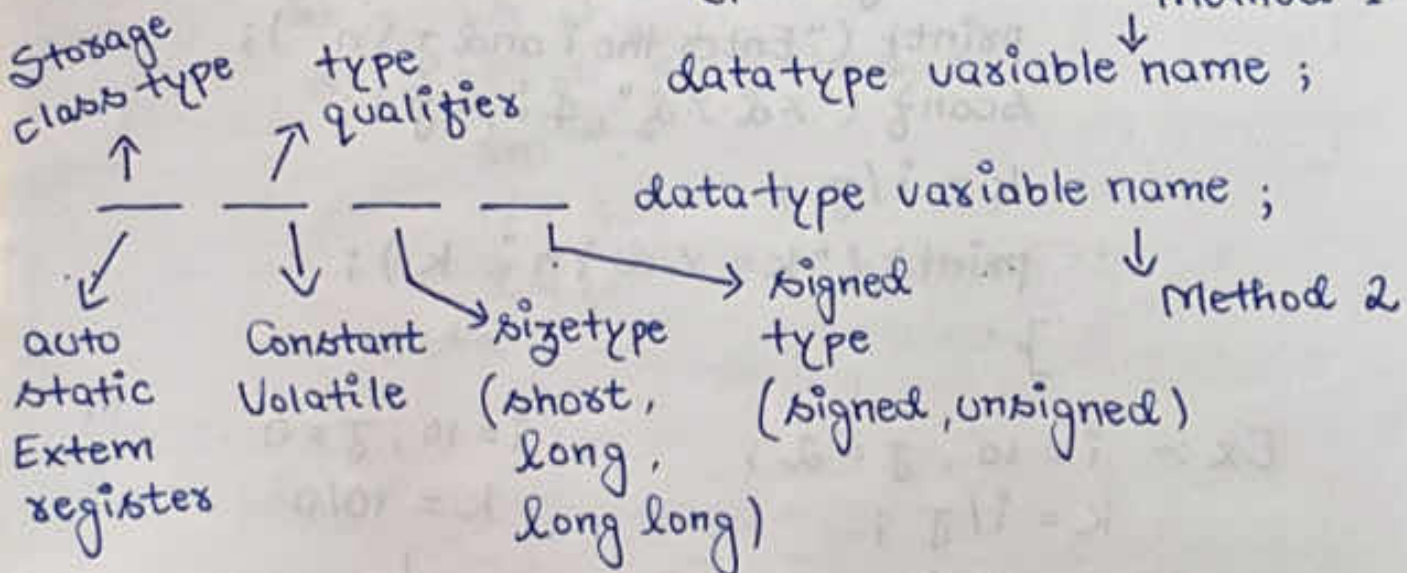 Storage
class type
type
qualifier
datatype variable name ;
datatype variable name ;
Method 2
auto
static
Extern
register
Constant
Volatile
sizetype
(short,
long,
long long)
signed
type
(signed, unsigned)